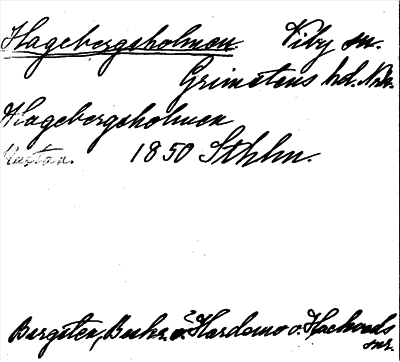 Hagebergsholmen. Viby sn.
Grimstens hd. Nke.
Hagebergsholmen
1850 Sthlm.
Bergsten, Beskr. ö. Hardemo o. Hackvads
snr.